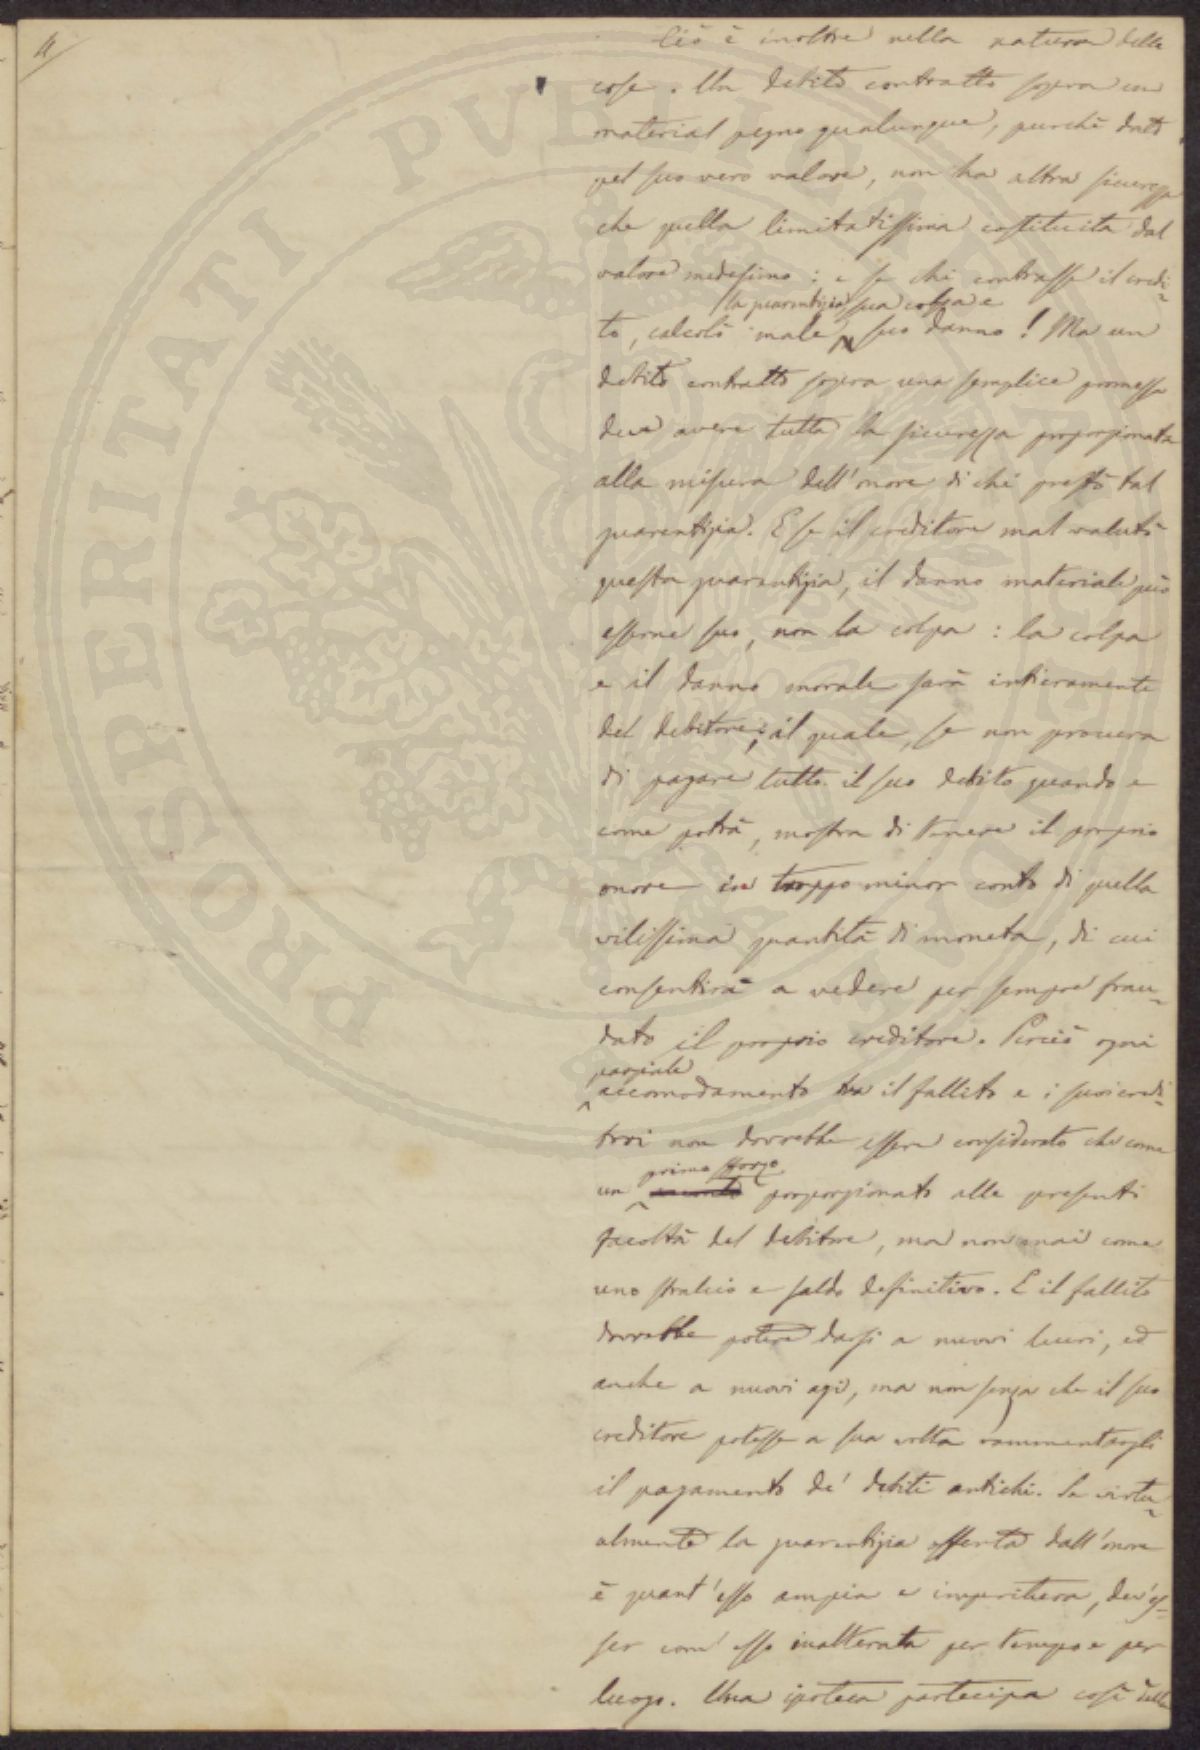 4/
Ciò è inoltre nella natura delle
cose. Un debito contratto sopra un
material pegno qualunque, purchè dato
pel suo vero valore, non ha altra sicurezza
che quella limitatissima costituita dal
valore medesimo: e se chi contrasse il credi-
la guarentigia sua colpa e
to, calcolò male, suo danno! Ma un
debito contratto sopra una semplice promessa
deve avere tutta la sicurezza proporzionata
alla misura dell'onore di chi prestò tal
guarentigia. E se il creditore mal valutò
questa guarentigia, il danno materiale può
esserne suo, non la colpa: la colpa
e il danno morale sarà intieramente
del debitore; il quale, se non procura
di pagare tutto il suo debito quando e
come potrà, mostra di tenere il proprio
onore in troppo minor conto di quella
vilissima quantità di moneta, di cui
consentirà a vedere per sempre frau-
dato il proprio creditore. Perciò ogni
parziale
accomodamento tra il fallito e i suoi credi-
tori non dovrebbe essere considerato che come
primo sforzo
un proporzionato alle presenti
facoltà del debitore, ma non mai come
uno stralcio e saldo definitivo. E il fallito
dovrebbe potere darsi a nuovi lucri, ed
anche a nuovi agi, ma non senza che il suo
creditore potesse a sua volta rammentargli
il pagamento de' debiti antichi. Se virtu-
almente la guarentigia offerta dall'onore
è quant'esso ampia e imperitura, dev'es-
ser com'esso inalterata per tempo e per
luogo. Una ipoteca partecipa così della
PROSPERITATI PUBLICAE